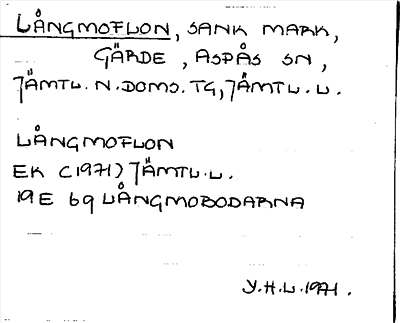 LÅNGMOFLON, SANK MARK,
GÄRDE, ASPÅS SN,
JÄMTL. N. DOMS. TG, JÄMTL. L.
LÅNGMOFLON
EK (1971) JÄMTL. L.
19E 6q LÅNGMOBODARNA
Y.H.L. 1971.